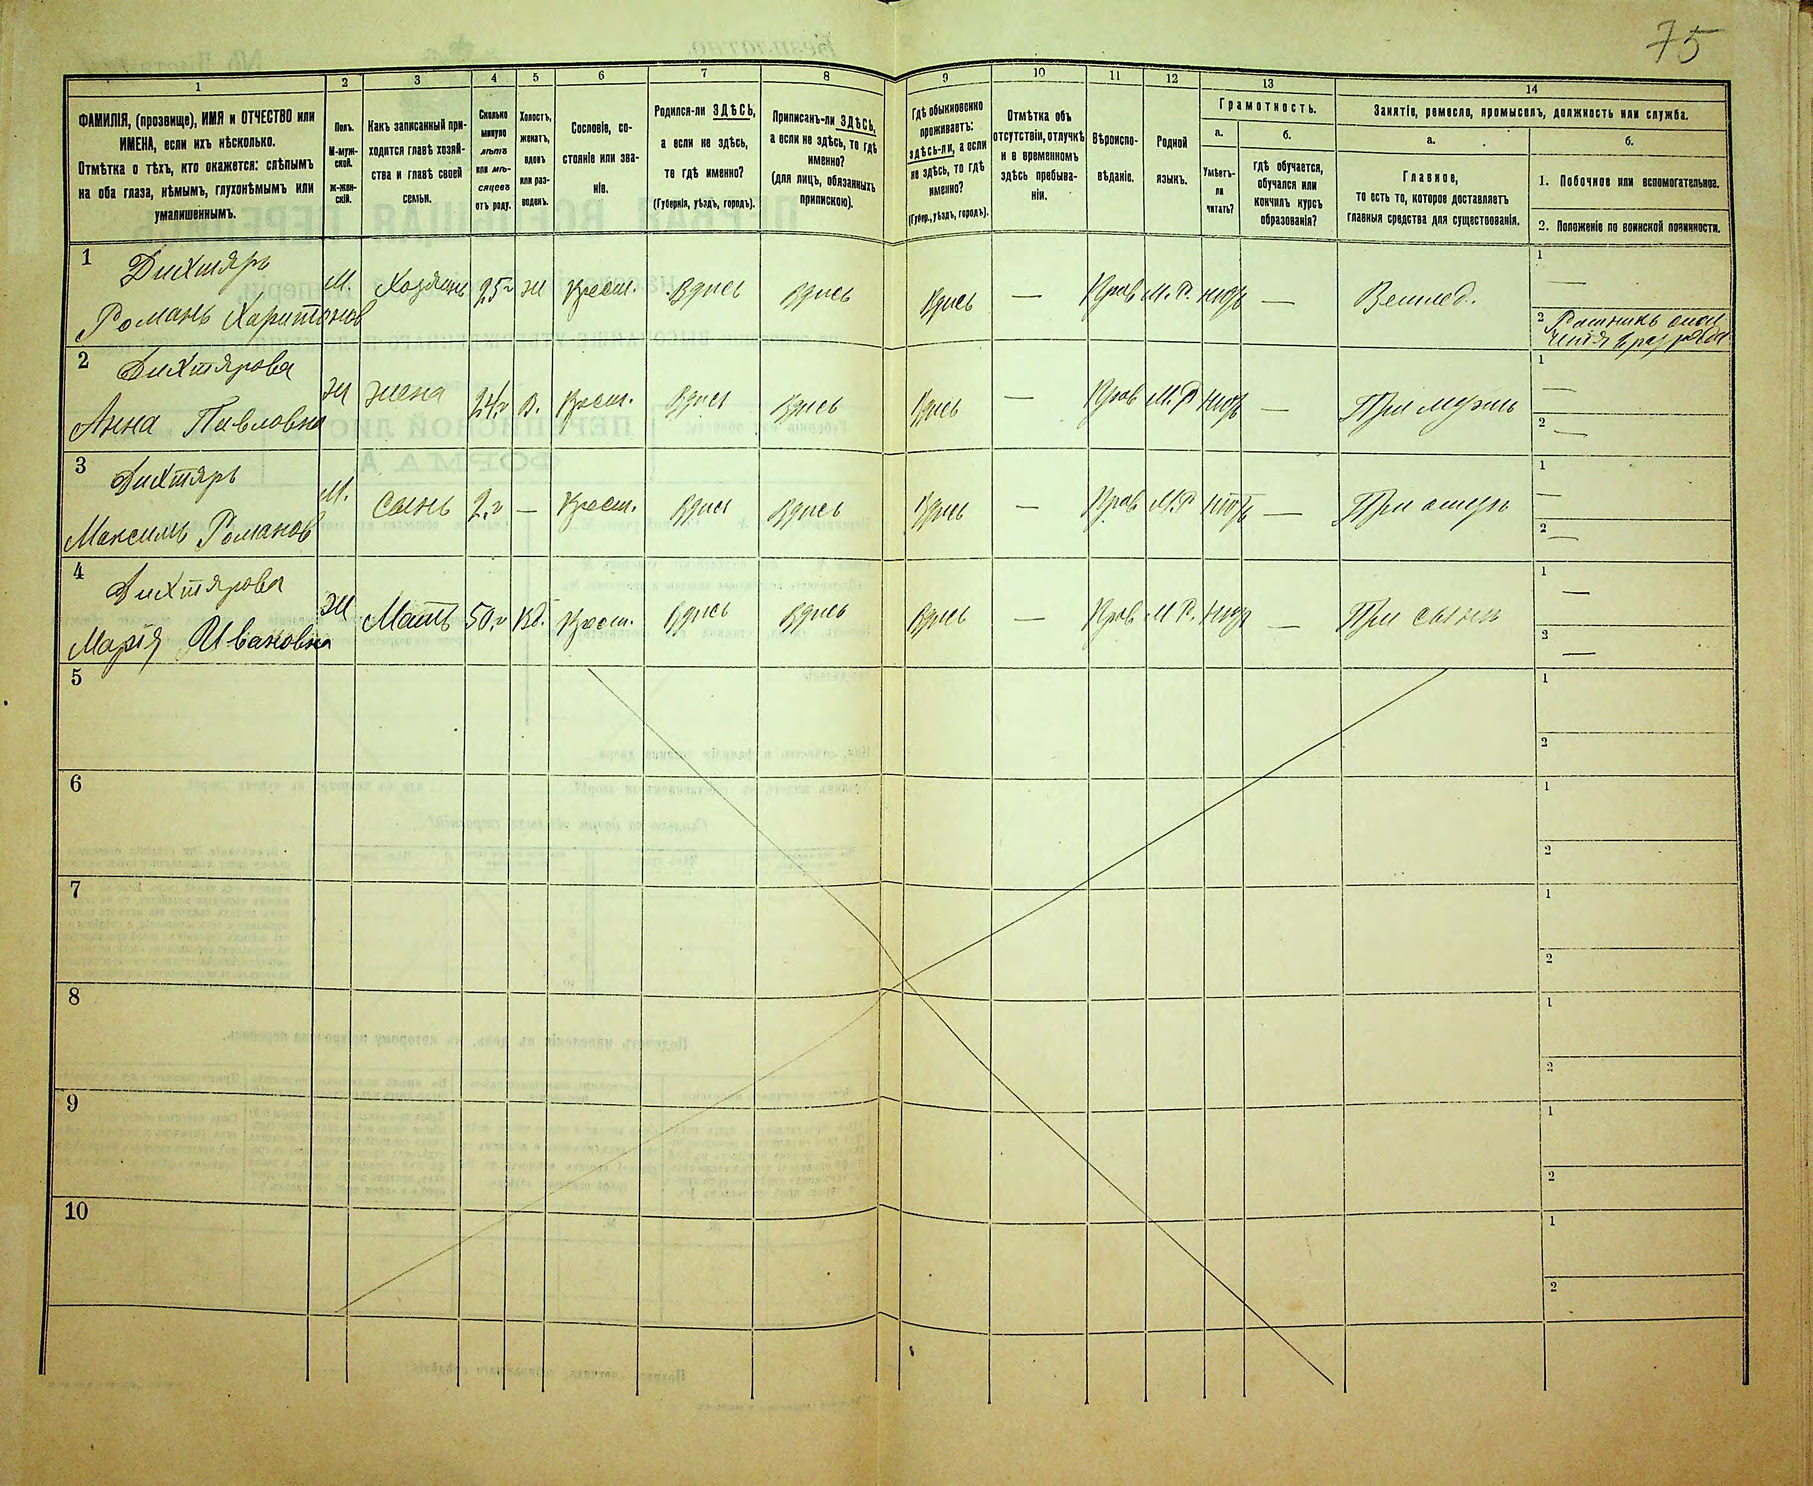 75
1
2
3
4
5
6
7
8
9
10
11
12
13
14
ФАМИЛІЯ, (прозвище), ИМЯ и ОТЧЕСТВО или
ИМЕНА, если ихъ нѣсколько.
Отмѣтка о тѣхъ, кто окажется: слѣпымъ
на оба глаза, нѣмымъ, глухонѣмымъ или
умалишеннымъ.
Полъ.
М-муж-
ской.
Ж-жен-
скій.
Какъ записанный при-
ходится главѣ хозяй-
ства и главѣ своей
семьи.
Сколько
минуло
лѣтъ
или мѣ-
сяцевъ
отъ роду.
Холостъ,
женатъ,
вдовъ
или раз-
веденъ.
Сословіе, со-
стояніе или зва-
ніе.
Родился-ли ЗДѢСЬ,
а если не здѣсь,
то гдѣ именно?
(Губернія, уѣздъ, городъ).
Приписанъ-ли ЗДѢСЬ,
а если не здѣсь, то гдѣ
именно?
(для лицъ, обязанныхъ
припискою).
Гдѣ обыкновенно
проживаетъ:
здѣсь-ли, а если
не здѣсь, то гдѣ
именно?
(Губер., уѣздъ, городъ).
Отмѣтка объ
отсутствіи, отлучкѣ
и о временномъ
здѣсь пребыва-
ніи.
Вѣроиспо-
вѣданіе.
Родной
языкъ.
Грамотность.
а.
б.
Умѣетъ-
ли
читать?
Гдѣ обучается,
обучался или
кончилъ курсъ
образованія?
Занятіе, ремесло, промыселъ, должность или служба.
а.
б.
Главное,
то есть то, которое доставляетъ
главныя средства для существованія.
1. Побочное или вспомогательное.
2. Положеніе по воинской повинности.
1
Дихтяръ
Романъ Харитоновъ
М.
Хозяинъ
25 г
ж
Крест.
Здѣсь
Здѣсь
Здѣсь
—
Прав
М.Р.
нѣтъ
—
Землед.
1
—
2
Ратникъ опол
ченія
2
Дихтярова
Анна Павловна
Ж
жена
24 г
З.
Крест.
Здѣсь
Здѣсь
Здѣсь
—
Прав
М.Р
нѣтъ
—
При мужѣ
1
—
2
—
3
Дихтяръ
Максимъ Романовъ
М.
сынъ
2 г
—
Крест.
Здѣсь
Здѣсь
Здѣсь
—
Прав
М.Р
нѣтъ
—
При отцѣ
1
—
2
—
4
Дихтярова
Марія Ивановна
Ж
Мать
50 г
Вд.
Крест.
Здѣсь
Здѣсь
Здѣсь
—
Прав
М.Р.
нѣтъ
—
При сынѣ
1
—
2
—
5
1
2
6
1
2
7
1
2
8
1
2
9
1
2
10
1
2